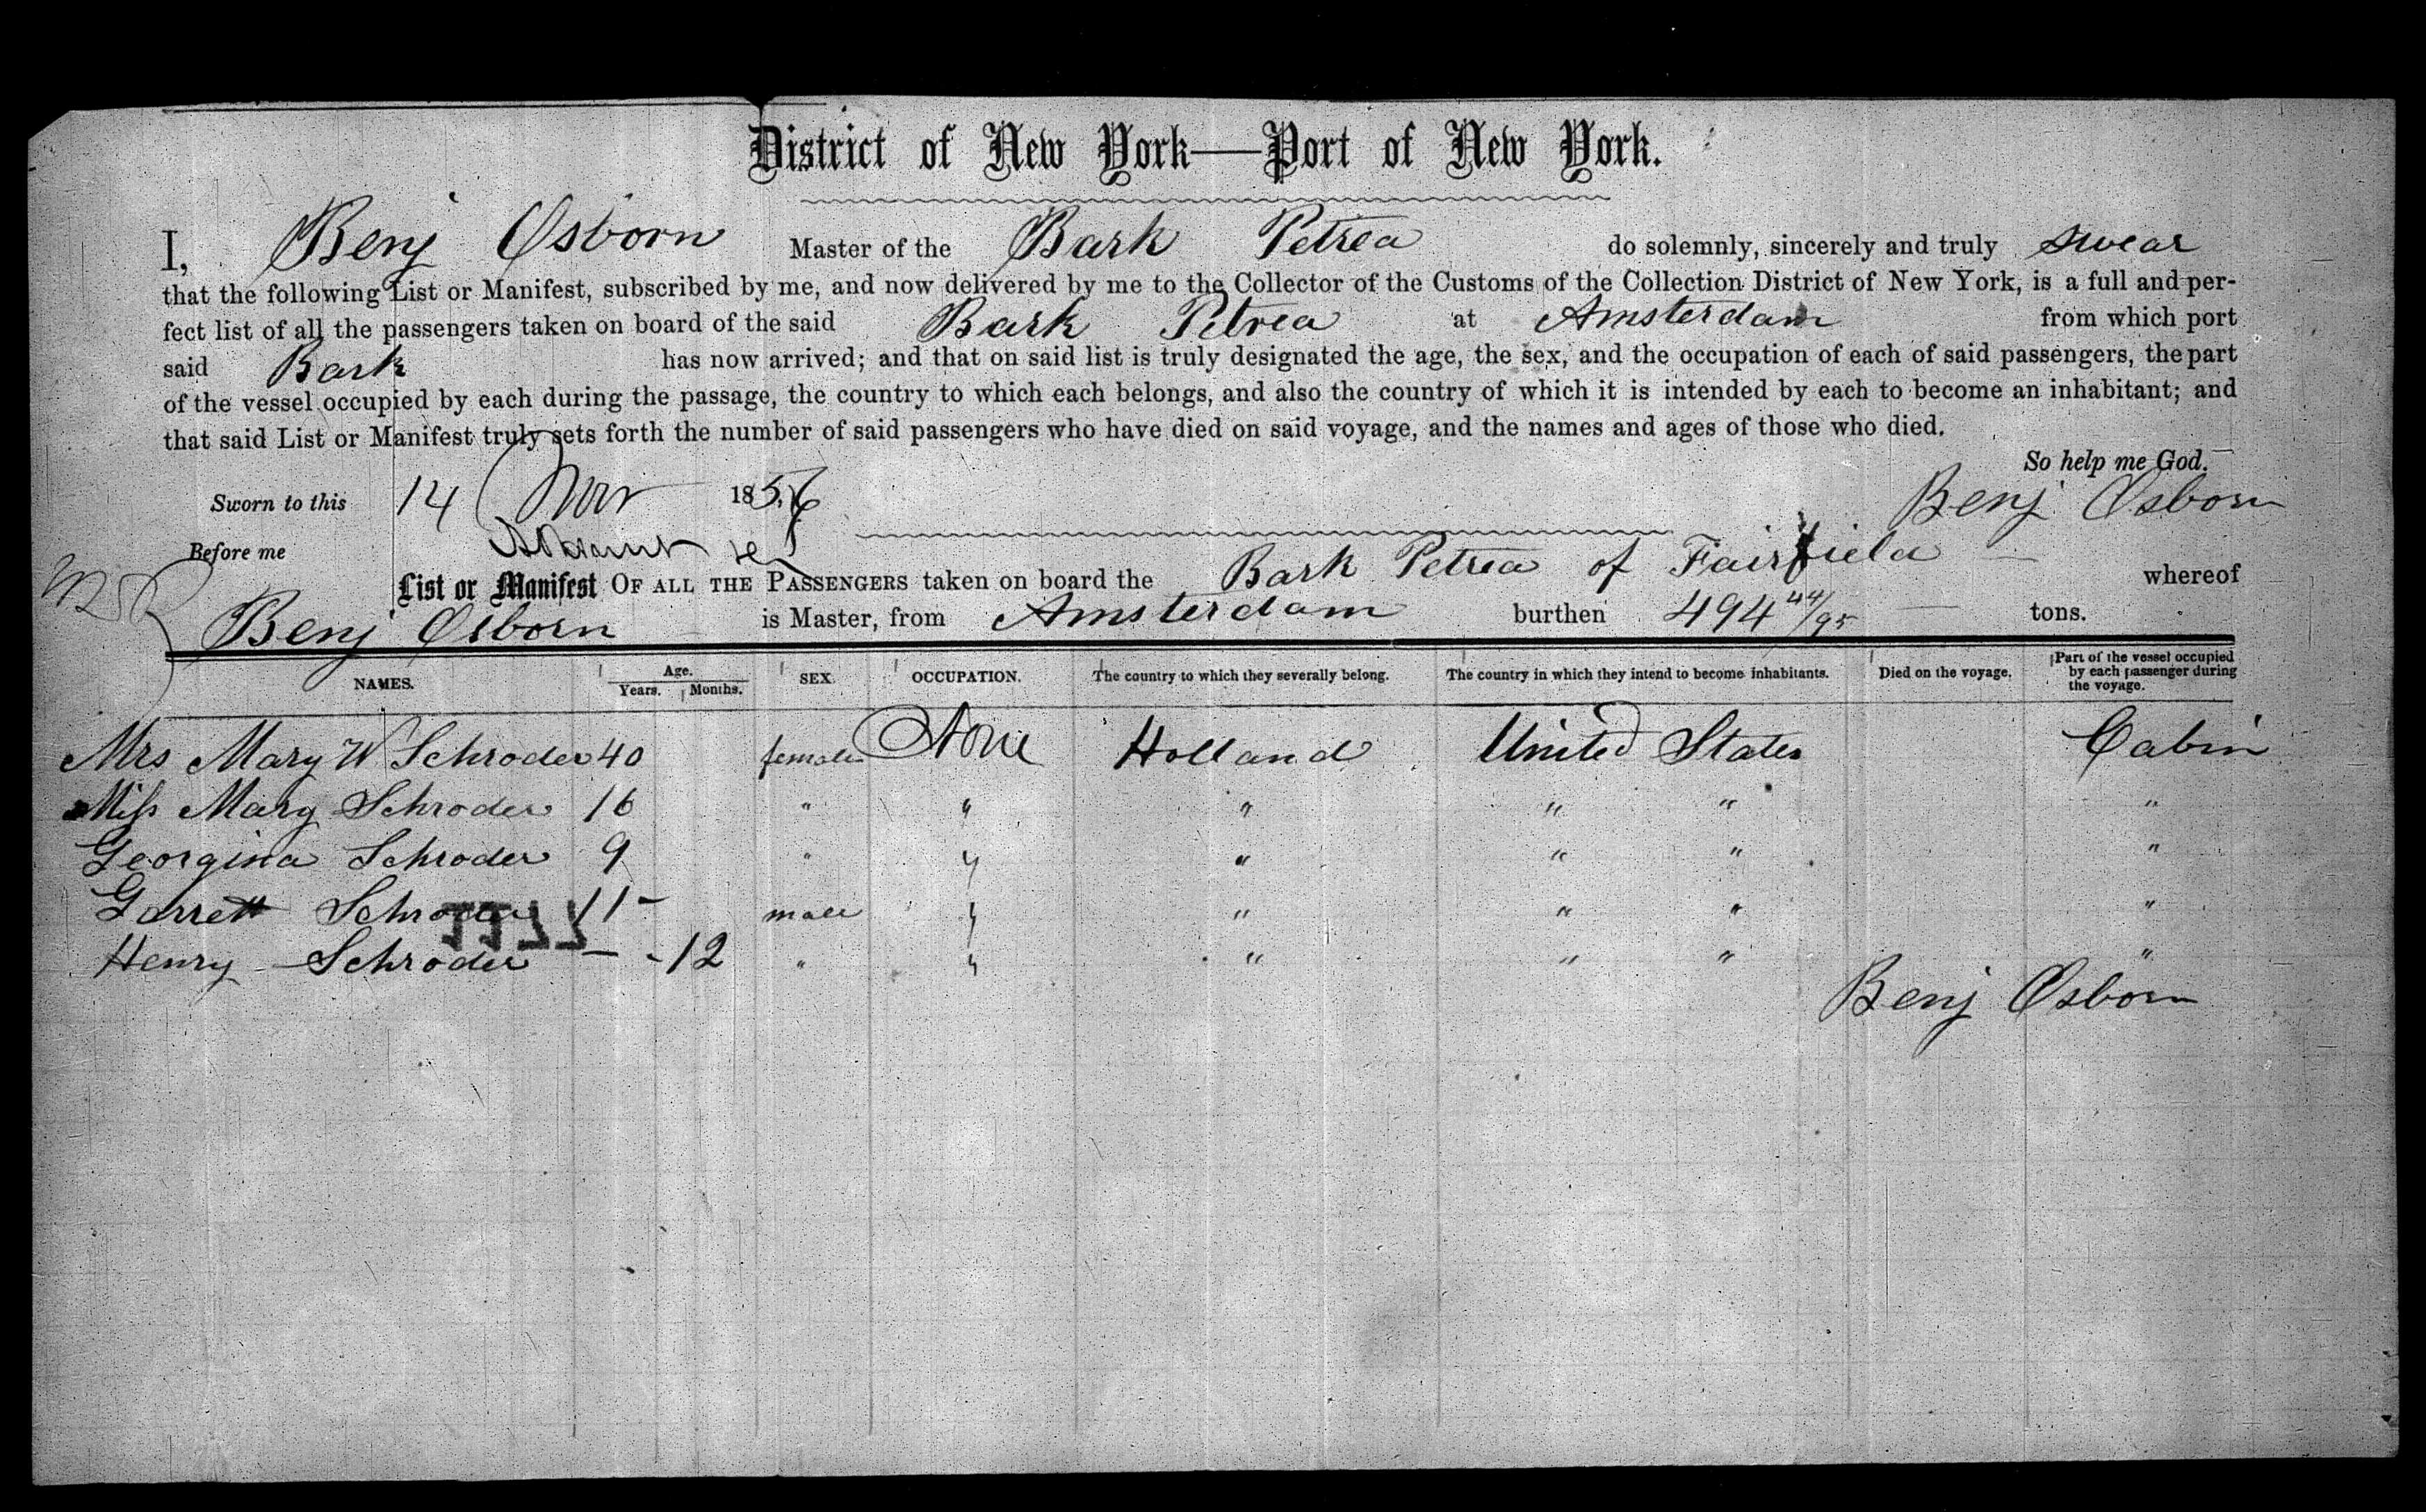 District of New York—Port of New York.
I, Benj Osborn Master of the Bark Petrea do solemnly, sincerely and truly swear
that the following List or Manifest, subscribed by me, and now delivered by me to the Collector of the Customs of the Collection District of New York, is a full and per-
fect list of all the passengers taken on board of the said Bark Petrea at Amsterdam from which port
said Bark has now arrived; and that on said list is truly designated the age, the sex, and the occupation of each of said passengers, the part
of the vessel occupied by each during the passage, the country to which each belongs, and also the country of which it is intended by each to become an inhabitant; and
that said List or Manifest truly sets forth the number of said passengers who have died on said voyage, and the names and ages of those who died.
So help me God.
Sworn to this 14 Nov 185 Benj Osborn
Before me
List or Manifest OF ALL THE PASSENGERS taken on board the Bark Petrea of Fairfield whereof
Benj Osborn is Master, from Amsterdam burthen 494 44/95 tons.
NAMES. Age. Years. Months. SEX. OCCUPATION. The country to which they severally belong. The country in which they intend to become inhabitants. Died on the voyage. Part of the vessel occupied by each passenger during the voyage.
Mrs Mary W Schroder 40 female None Holland United States Cabin
Miss Mary Schroder 16 " " " " " "
Georgina Schroder 9 " " " " " "
Garrett Schroder 11 - male " " " " "
1177
Henry Schroder — - 12 " " " " " "
Benj Osborn